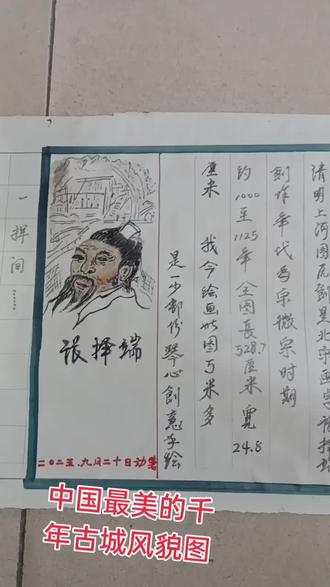 清明上河图原创是北宋画家张择端
创作年代为宋徽宗时期
约1000至1125年 全图長528.7厘米 寛24.8
厘米 我今绘画此图5米多
是一少部份 琴心創意手绘
张择端
二〇二五.九月二十日动笔
一挥间……
中国最美的千
年古城风貌图